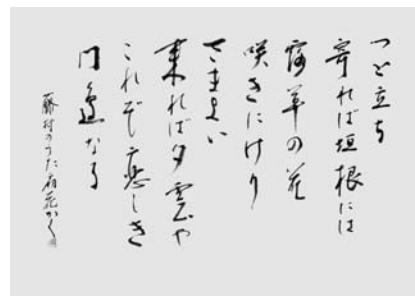 つと立ち
寄れば垣根には
露草の花
咲きにけり
さまよい
来れば夕雲や
これぞ恋しき
門辺なる
藤村のうた 有花かく